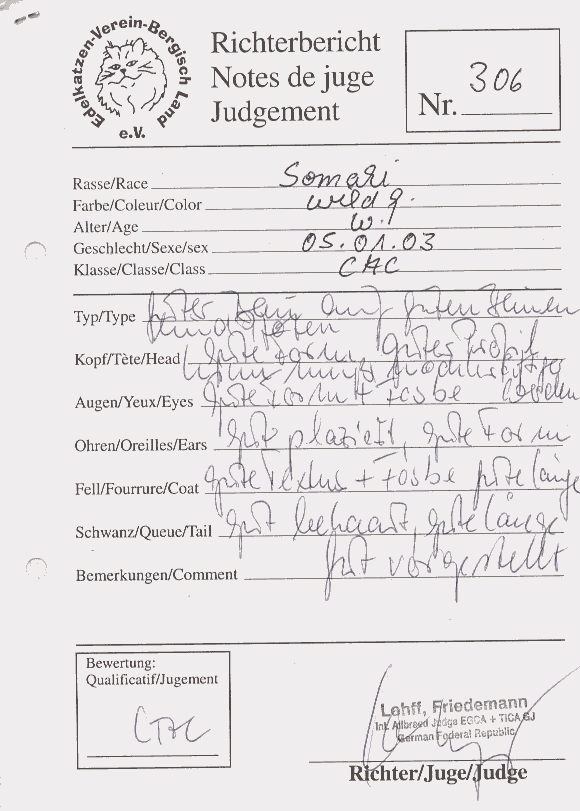 Edelkatzen-Verein-Bergisch Land
e.V.
Richterbericht
Notes de juge
Judgement
Nr. 306
Rasse/Race Somali
Farbe/Coleur/Color wild
Alter/Age w. 1
Geschlecht/Sexe/sex 05.01.03
Klasse/Classe/Class CAC
Typ/Type guter auf guten Beinen
und Pfoten
Kopf/Tète/Head gute Form, gutes Profil
Augen/Yeux/Eyes gute Form + Farbe
Ohren/Oreilles/Ears gut plaziert, gute Form
Fell/Fourrure/Coat gute Textur + Farbe gute Länge
Schwanz/Queue/Tail gut behaart, gute Länge
Bemerkungen/Comment gut vorgestellt
Bewertung:
Qualificatif/Jugement
CAC
Lehff, Friedemann
Int. Allbreed Judge EGCA + TICA GJ
German Federal Republic
Richter/Juge/Judge